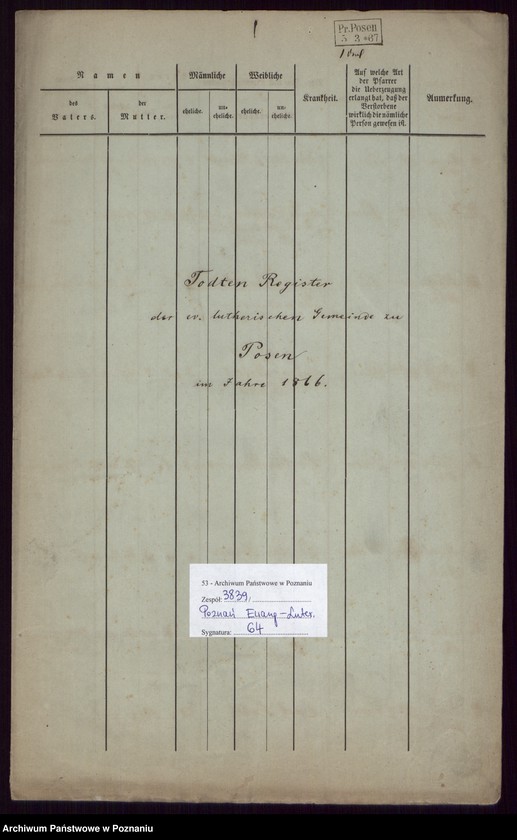 Pr. Posen
5 2 67
Namen
des Vaters.
der Mutter.
Männliche
eheliche.
un-
eheliche.
Weibliche
eheliche.
un-
eheliche.
Krankheit.
Auf welche Art
der Pfarrer
die Ueberzeugung
erlangt hat, daß der
Verstorbene
wirklich die nämliche
Person gewesen ist.
Anmerkung.
Todten Register
der ev. lutherischen Gemeinde zu
Posen
im Jahre 1866.
53 - Archiwum Państwowe w Poznaniu
Zespół: 3839,
Poznań Ewang-Luter.
Sygnatura: 64
Archiwum Państwowe w Poznaniu